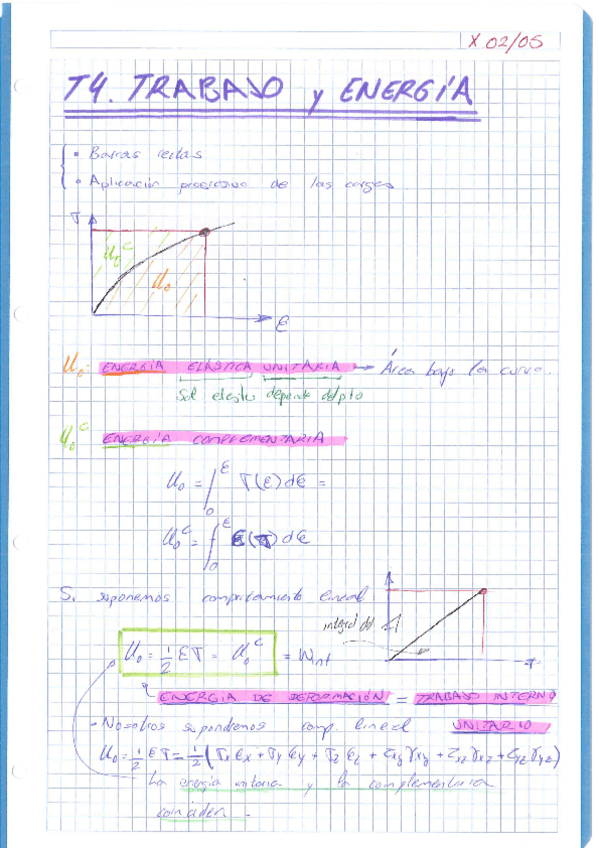 X 02/05
T4. TRABAJO y ENERGÍA
• Barras rectas
• Aplicación progresiva de las cargas.
σ
U₀ᶜ
U₀
ε
U₀: ENERGÍA ELÁSTICA UNITARIA → Área bajo la curva.
Sól elástico depende del pto
U₀ᶜ ENERGÍA COMPLEMENTARIA
U₀ = ∫₀^ε σ(ε) dε =
U₀ᶜ = ∫₀^ε ε(σ) dε
Si suponemos comportamiento lineal
integral del
U₀ = 1/2 εσ = U₀ᶜ = Wint
ENERGIA DE DEFORMACIÓN = TRABAJO INTERNO
- Nosotros supondremos comp. lineal UNITARIO
U₀ = 1/2 εσ = 1/2 (σx εx + σy εy + σz εz + τxy γxy + τxz γxz + τyz γyz)
La energia unitaria y la complementaria
coinciden.